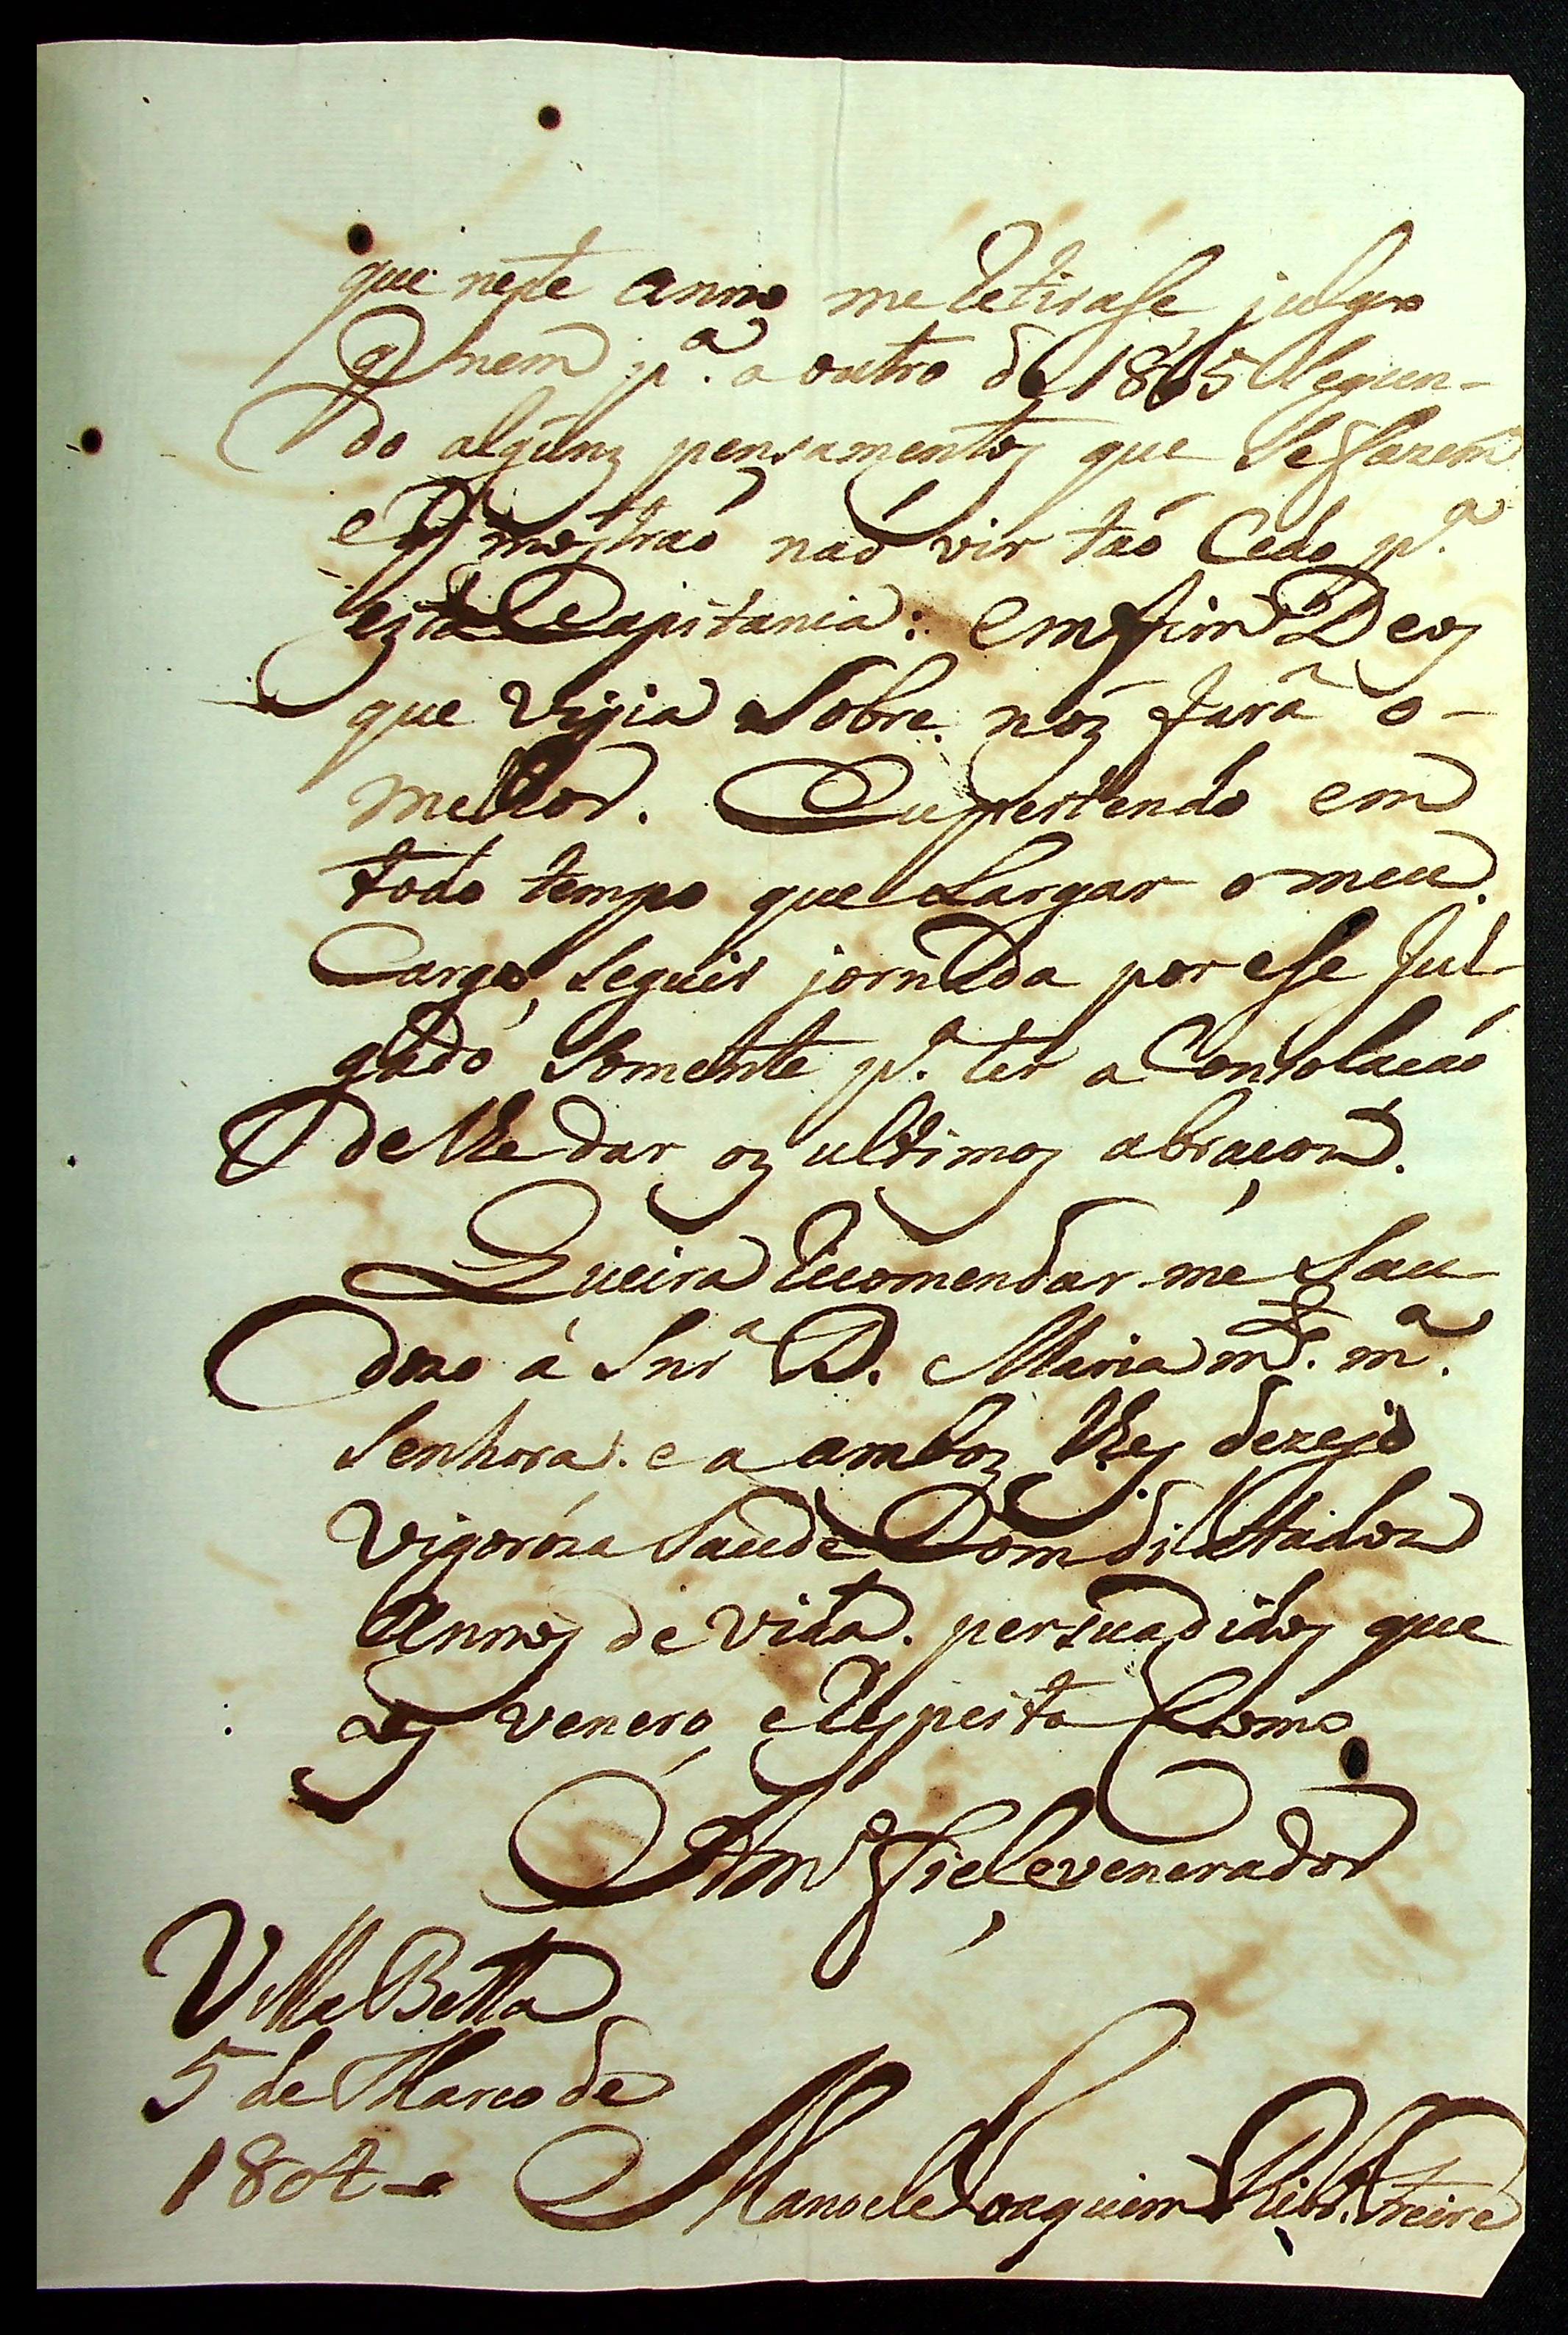 que neste anno me retirase julgo
q nem p.ª o outro de 1805 segun-
do algunz pensamentos que se fazem
e q mostraõ naõ vir taõ Cedo p.ª
ezta Capitania: emfim Deos
que vigia sobre nóz fará o-
melhor. Eu pertendo em
todo tempo que Largar o meu
Cargo, seguir jornada por ese Jul-
gado somente p.ª ter a Consolacaõ
de lhe dar oz ultimos abraçoz.
Queira recomendar-me Sau-
dozo á Snr.ª D. Maria m.ª
Senhora. e a amboz dezejo
vigoróza saude Com dillatadoz
Annos de vida. persuadidos que
os venero, e respeito Como
Am.º fiel, e venerador
Villa Bella
5 de Marco de
1804
Manoel Joaquim Ribr.º Freire